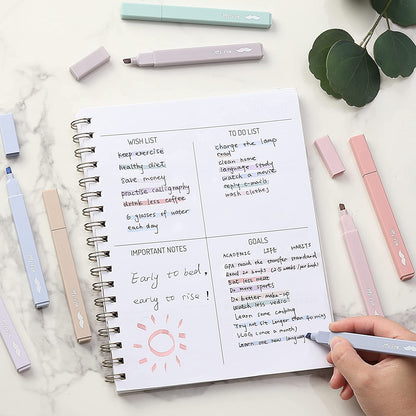 WISH LIST
keep exercise
healthy diet
save money
practise calligraphy
drink less coffee
6 glasses of water
each day
TO DO LIST
change the lamp
read
clean home
language study
watch a movie
reply e-mails
wash clothes
IMPORTANT NOTES
Early to bed,
early to rise!
GOALS
ACADEMIC LIFE HABITS
GPA reach the transfer standard
Read 10 books
Eat less meat
Do more sports
Do better make-up
Watch less video
Learn some cooking
Try not sit longer than 40 mins
Vlog (once a month)
Learn one new language